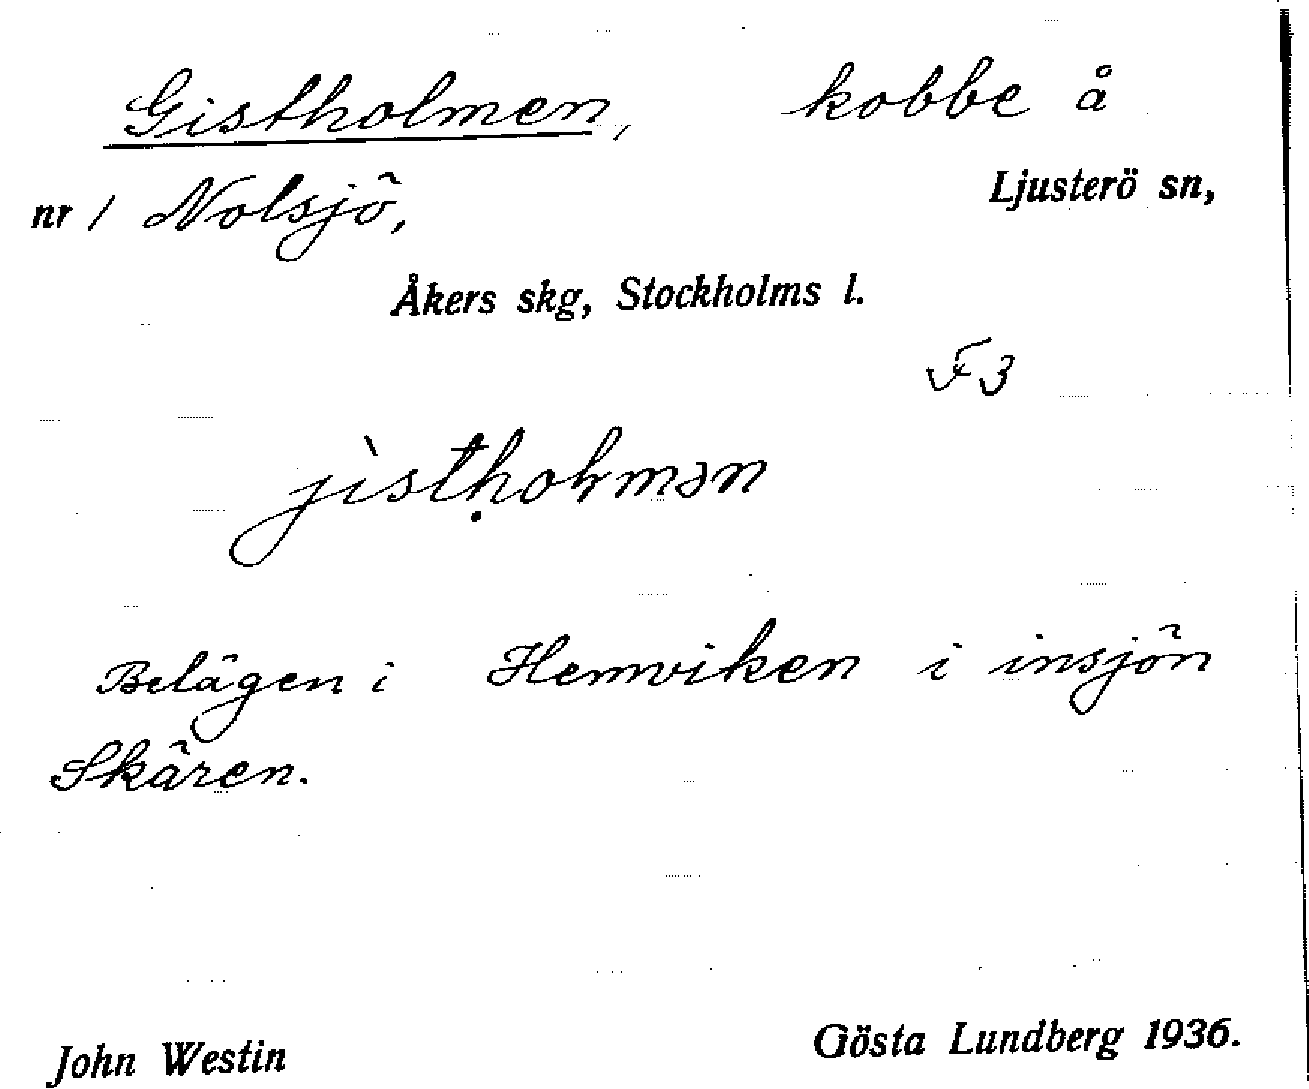 Gistholmen, kobbe å
nr 1 Nolsjö, Ljusterö sn,
Åkers skg, Stockholms l.
F3
jìstḥoɫmən
Belägen i Hemviken i insjön
Skären.
John Westin Gösta Lundberg 1936.